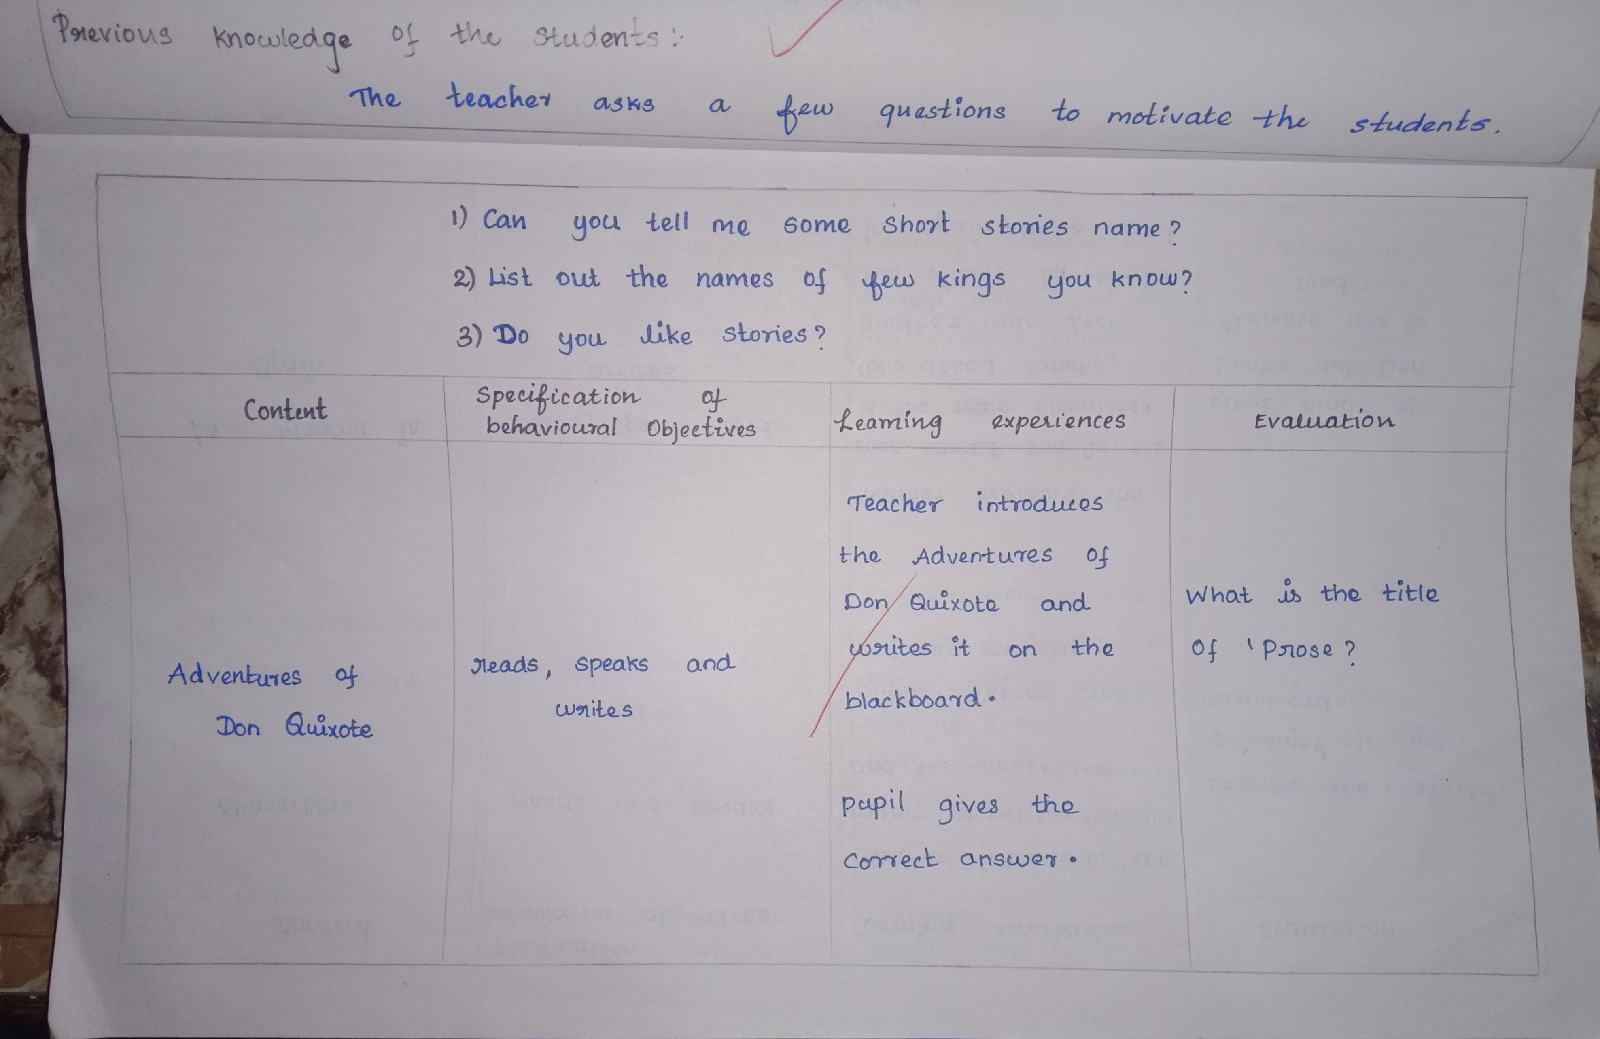 Previous knowledge of the students:
The teacher asks a few questions to motivate the students.
1) Can you tell me some short stories name?
2) List out the names of few kings you know?
3) Do you like stories?
Content
Specification of
behavioural Objectives
Learning experiences
Evaluation
Adventures of
Don Quixote
reads, speaks and
writes
Teacher introduces
the Adventures of
Don Quixote and
writes it on the
blackboard.
pupil gives the
correct answer.
What is the title
of 'Prose?